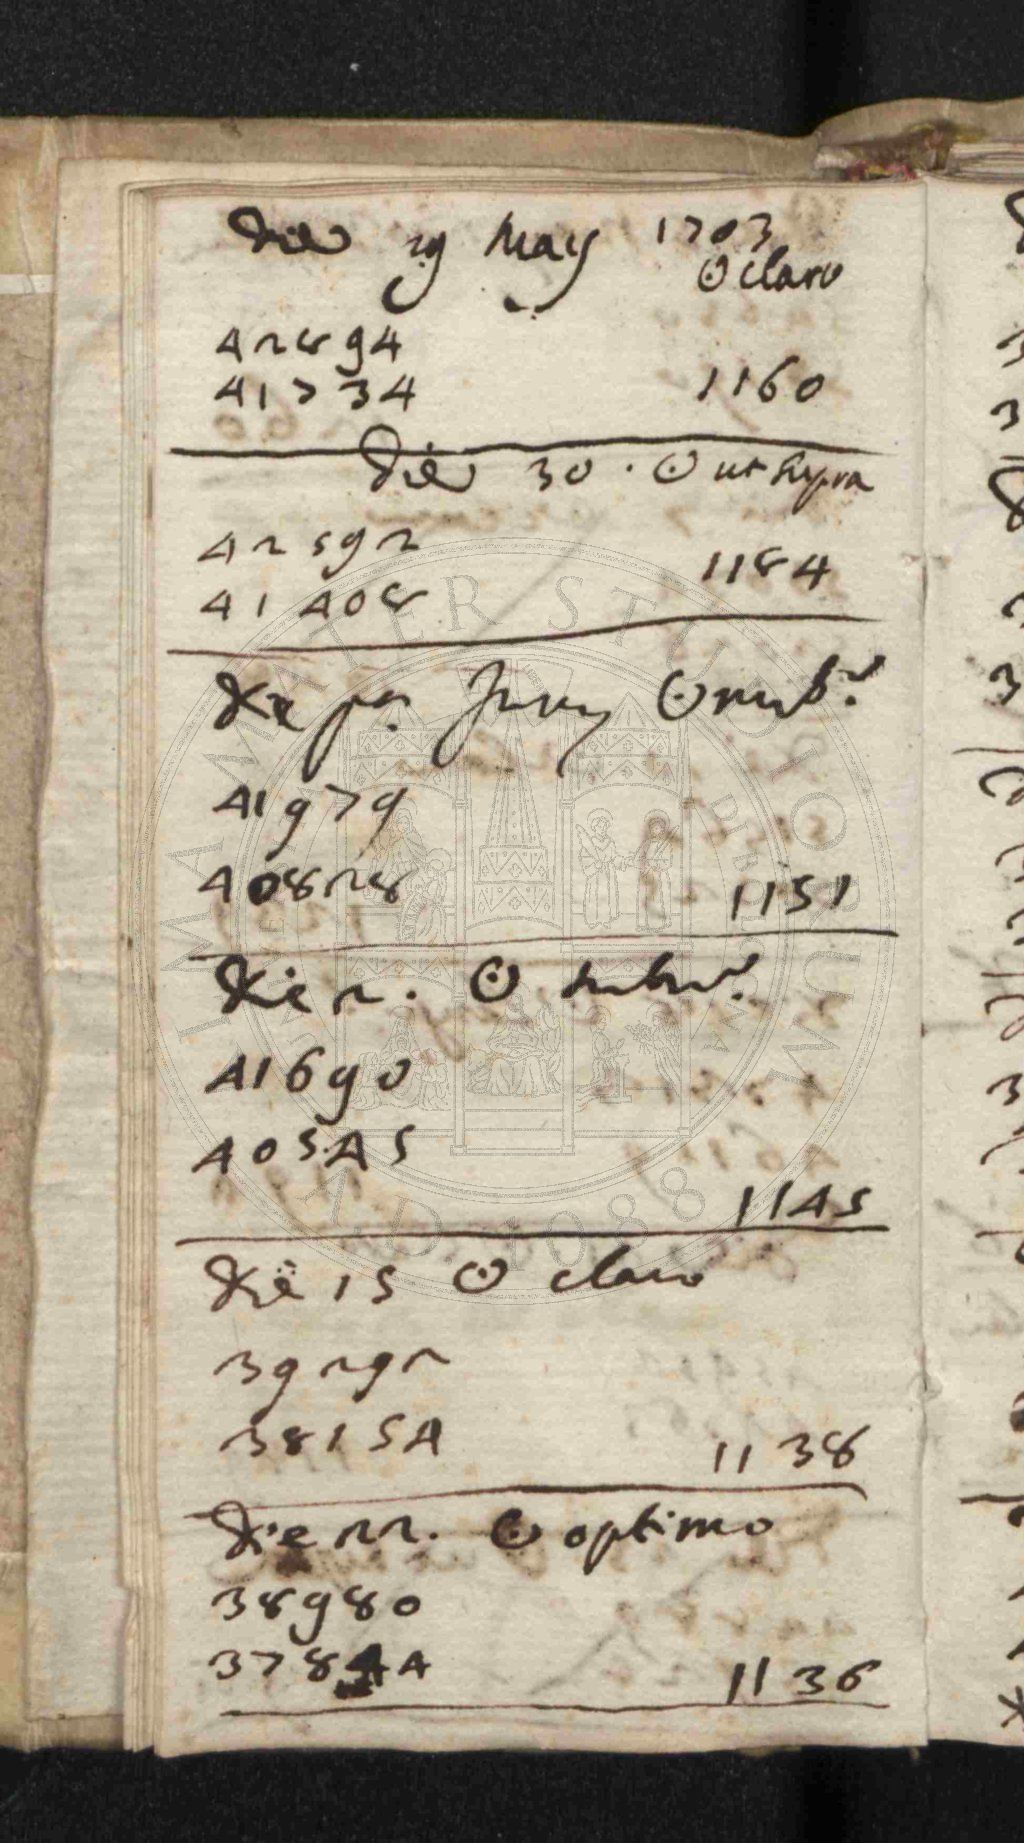 Die 29 May 1703
☉ claro
42894
41734 1160
Die 30 . ☉ ut supra
42592
1184
41408
Die pa. Juny ☉
41979
40828 1151
Die 2. ☉
41690
40545
1145
Die 15 ☉ claro
39292
38154 1138
Die 22. ☉ optimo
38980
37844 1136
ALMA MATER STUDIORUM
A.D. 1088